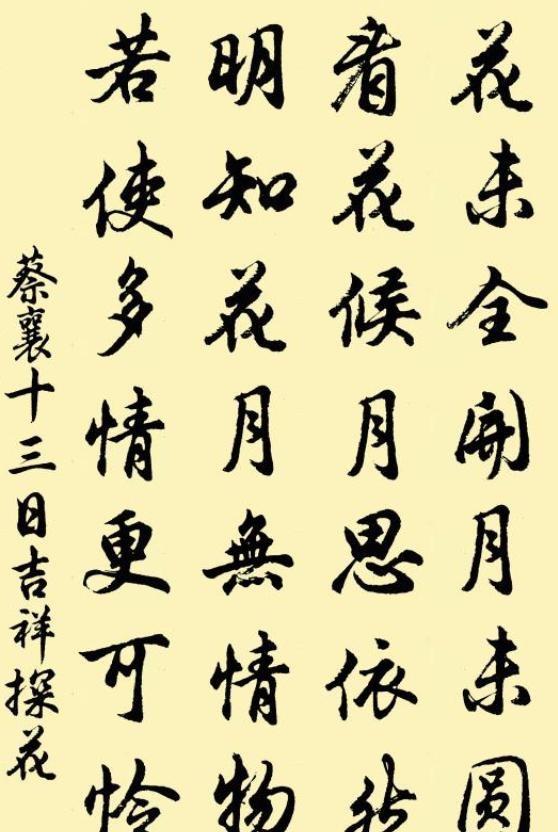 花未全開月未圓
看花候月思依然
明知花月無情物
若使多情更可怜
蔡襄十三日吉祥探花